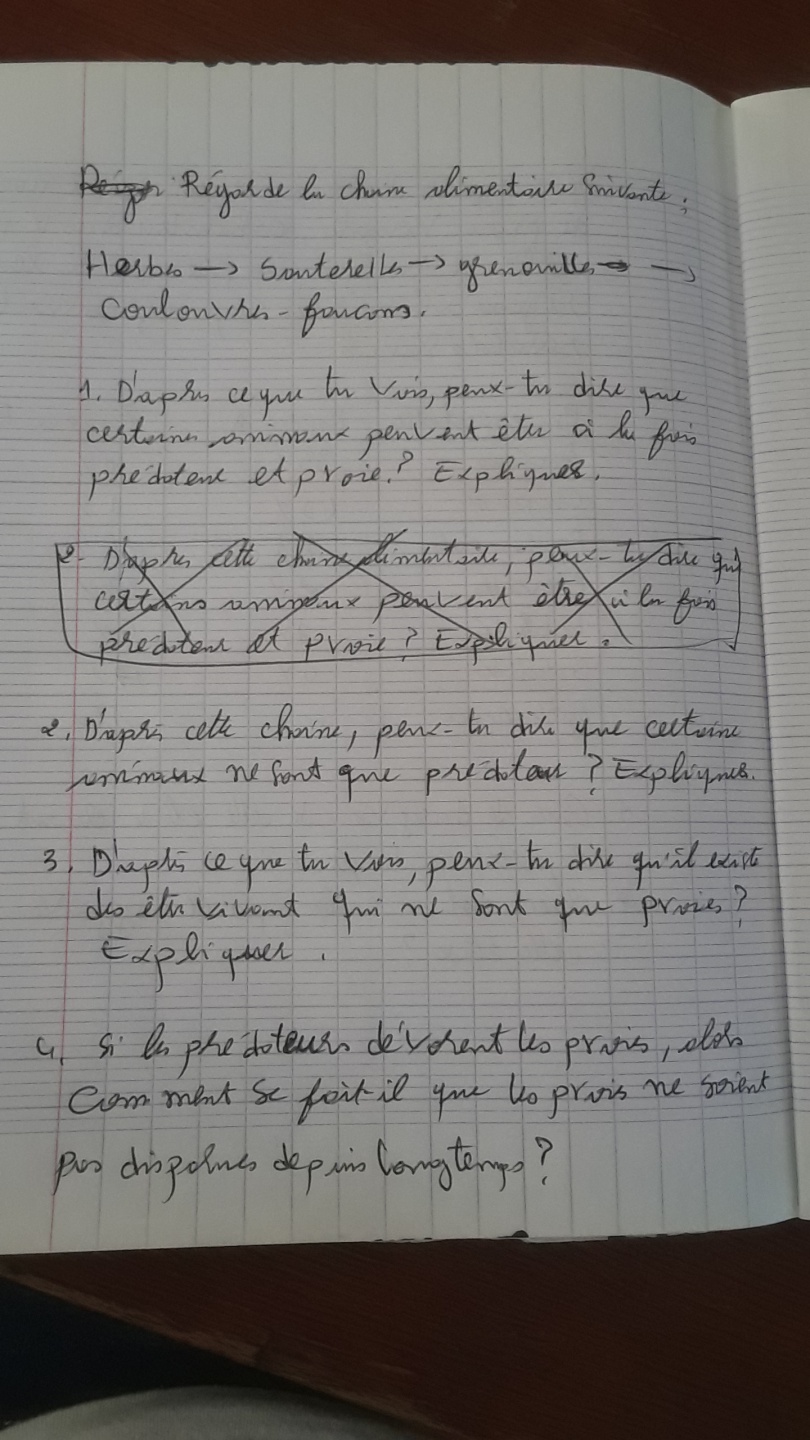 Régarde la chaine alimentaire suivante :
Herbes → Sauterelles → grenouilles →
Coulouvres - foucons.
1. D'après ce que tu vois, peux-tu dire que
certains animaux peuvent être à la fois
prédateur et proie ? Expliques.
2- D'après cette chaine alimentaire, peux-tu dire que
certains animaux peuvent être à la fois
prédateur et proie ? Expliquer.
2. D'après cette chaine, peux-tu dire que certains
animaux ne sont que prédateur ? Expliques.
3. D'après ce que tu vois, peux-tu dire qu'il existe
des être vivant qui ne sont que proies ?
Expliquer.
4. Si les prédateurs dévorent les proies, alors
Comment se fait-il que les proies ne soient
pas disparues depuis longtemps ?